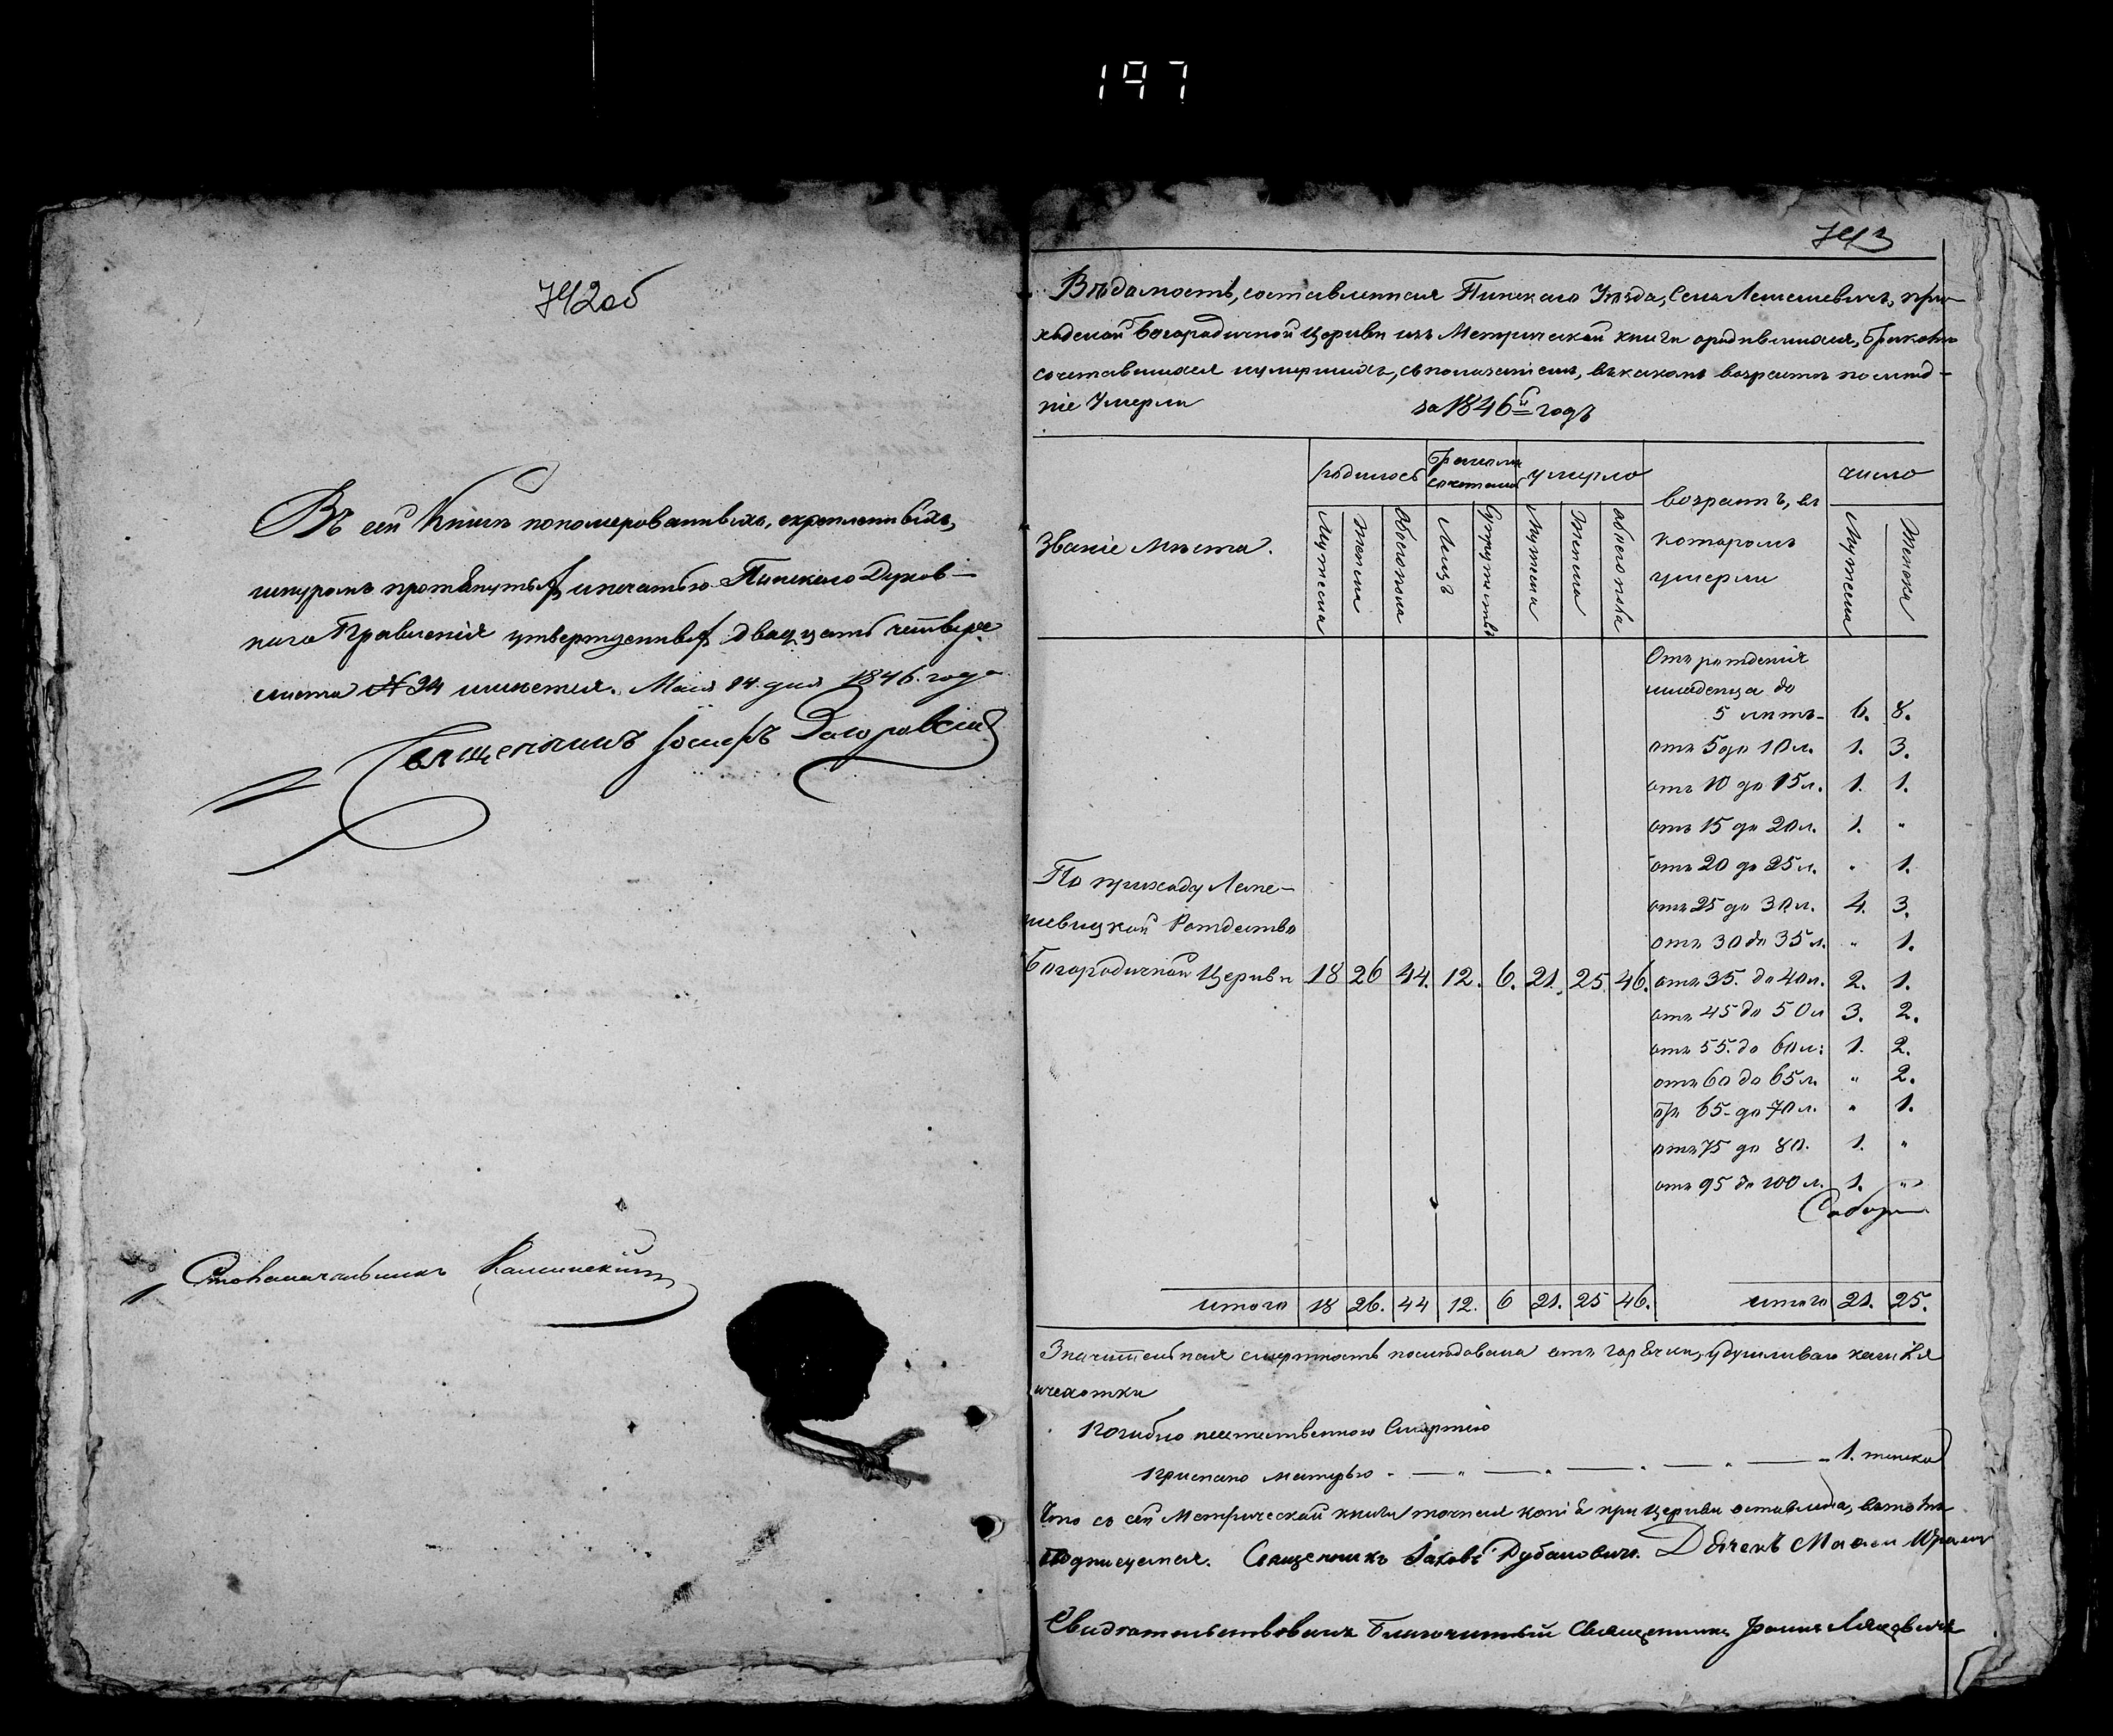 197
742об
Въ сей Книгѣ пономерованныхъ, скрепленныхъ,
шнуромъ протянутыхъ и печатью Пинскаго Духов-
наго Правленія утвержденныхъ двадцать четыре
листа № 24 имѣется. Маія 24 дня 1846 года
Священникъ Іосифъ
Столоначальникъ Калинскій
743
Вѣдомость, составленная Пинскаго Уѣзда, Села Лемешевичъ, при-
ходской Богородичной Церкви изъ Метрической книги о родившихся, бракомъ
сочетавшихся и умершихъ, съ показаніемъ, въ какомъ возрастѣ послѣд-
ніе Умерли за 1846й годъ
Званіе Мѣста. родилось Бракомъ сочетано умерло возрастъ, въ котором умерли число
Мужеска Женска обоего пола Лицъ Супружествъ Мужеска Женска обоего пола Мужеска Женска
Отъ рожденія
младенца до
5 лѣтъ- 6. 8.
отъ 5 до 10 л. 1. 3.
отъ 10 до 15 л. 1. 1.
отъ 15 до 20 л. 1. "
отъ 20 до 25 л. " 1.
отъ 25 до 30 л. 4. 3.
отъ 30 до 35 л. " 1.
По приходу Леме-
шевицкой Рождество
Богородичной Церкви 18 26 44. 12. 6. 21. 25. 46. отъ 35. до 40 л. 2. 1.
отъ 45 до 50 л 3. 2.
отъ 55. до 60 л: 1. 2.
отъ 60 до 65 л. " 2.
отъ 65 до 70 л. " 1.
отъ 75 до 80. 1. "
отъ 95 до 100 л. 1. "
итого 18 26. 44 12. 6 21. 25 46. итого 21. 25.
Значительная смертность последовала отъ горячки, удушливаго кашля
и чехотки
Погибло неестественною Смертію
Приспано матерью - — " — " — " — " — 1. женска
Что съ сей Метрической книги точная копія при Церкви оставлена, въ томъ
Подписуемся. Священникъ Іаковъ Дубановичъ. Дьячекъ
Свидѣтельствовалъ Благочинный Священникъ